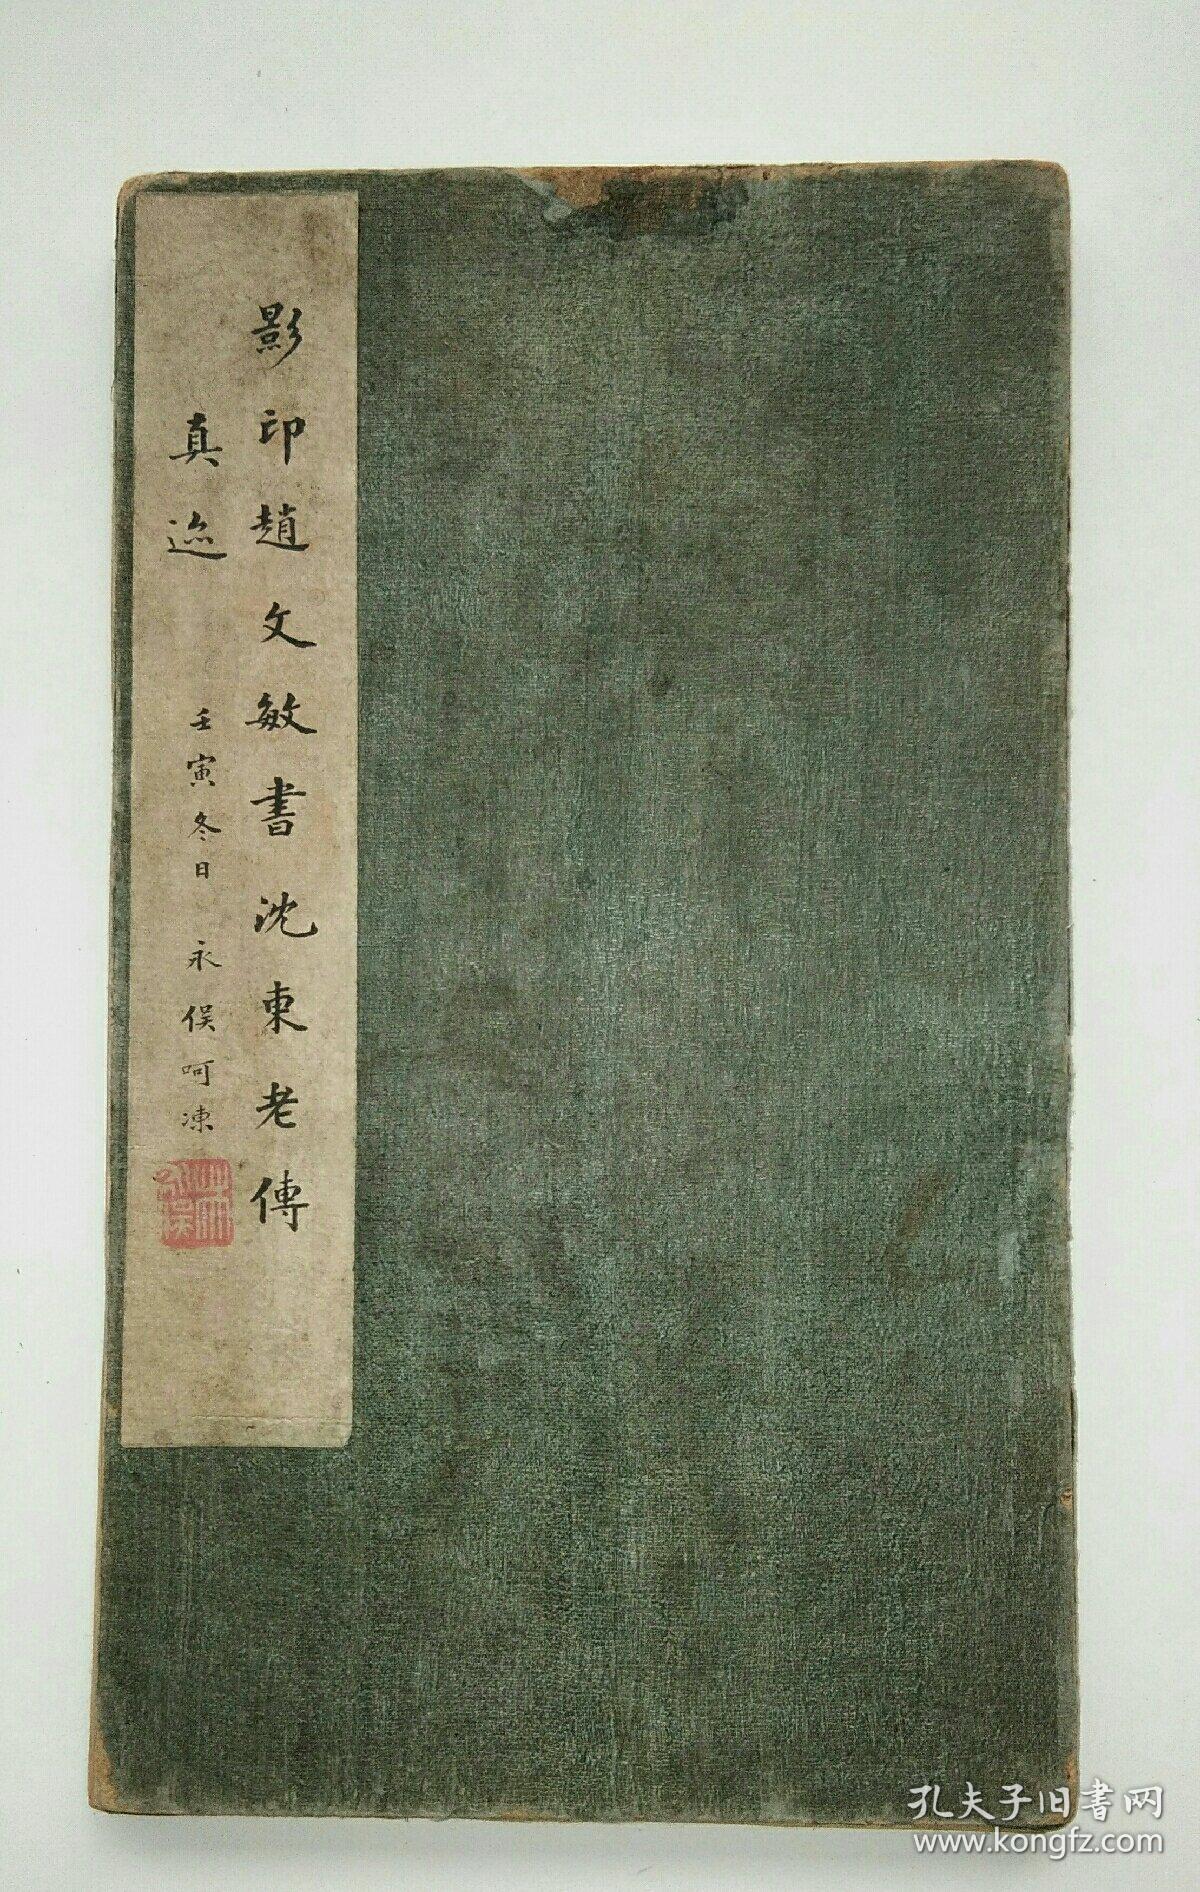 影印趙文敏書沈東老傳
真迹
壬寅冬日 永俣呵凍
孔夫子旧書网
www.kongfz.com